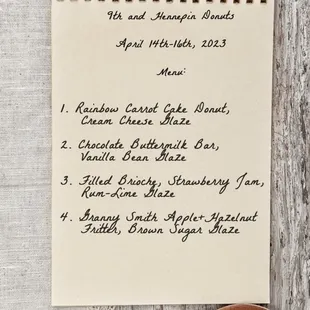 9th and Hennepin Donuts
April 14th-16th, 2023
Menu:
1. Rainbow Carrot Cake Donut,
Cream Cheese Glaze
2. Chocolate Buttermilk Bar,
Vanilla Bean Glaze
3. Filled Brioche, Strawberry Jam,
Rum-Lime Glaze
4. Granny Smith Apple+Hazelnut
Fritter, Brown Sugar Glaze